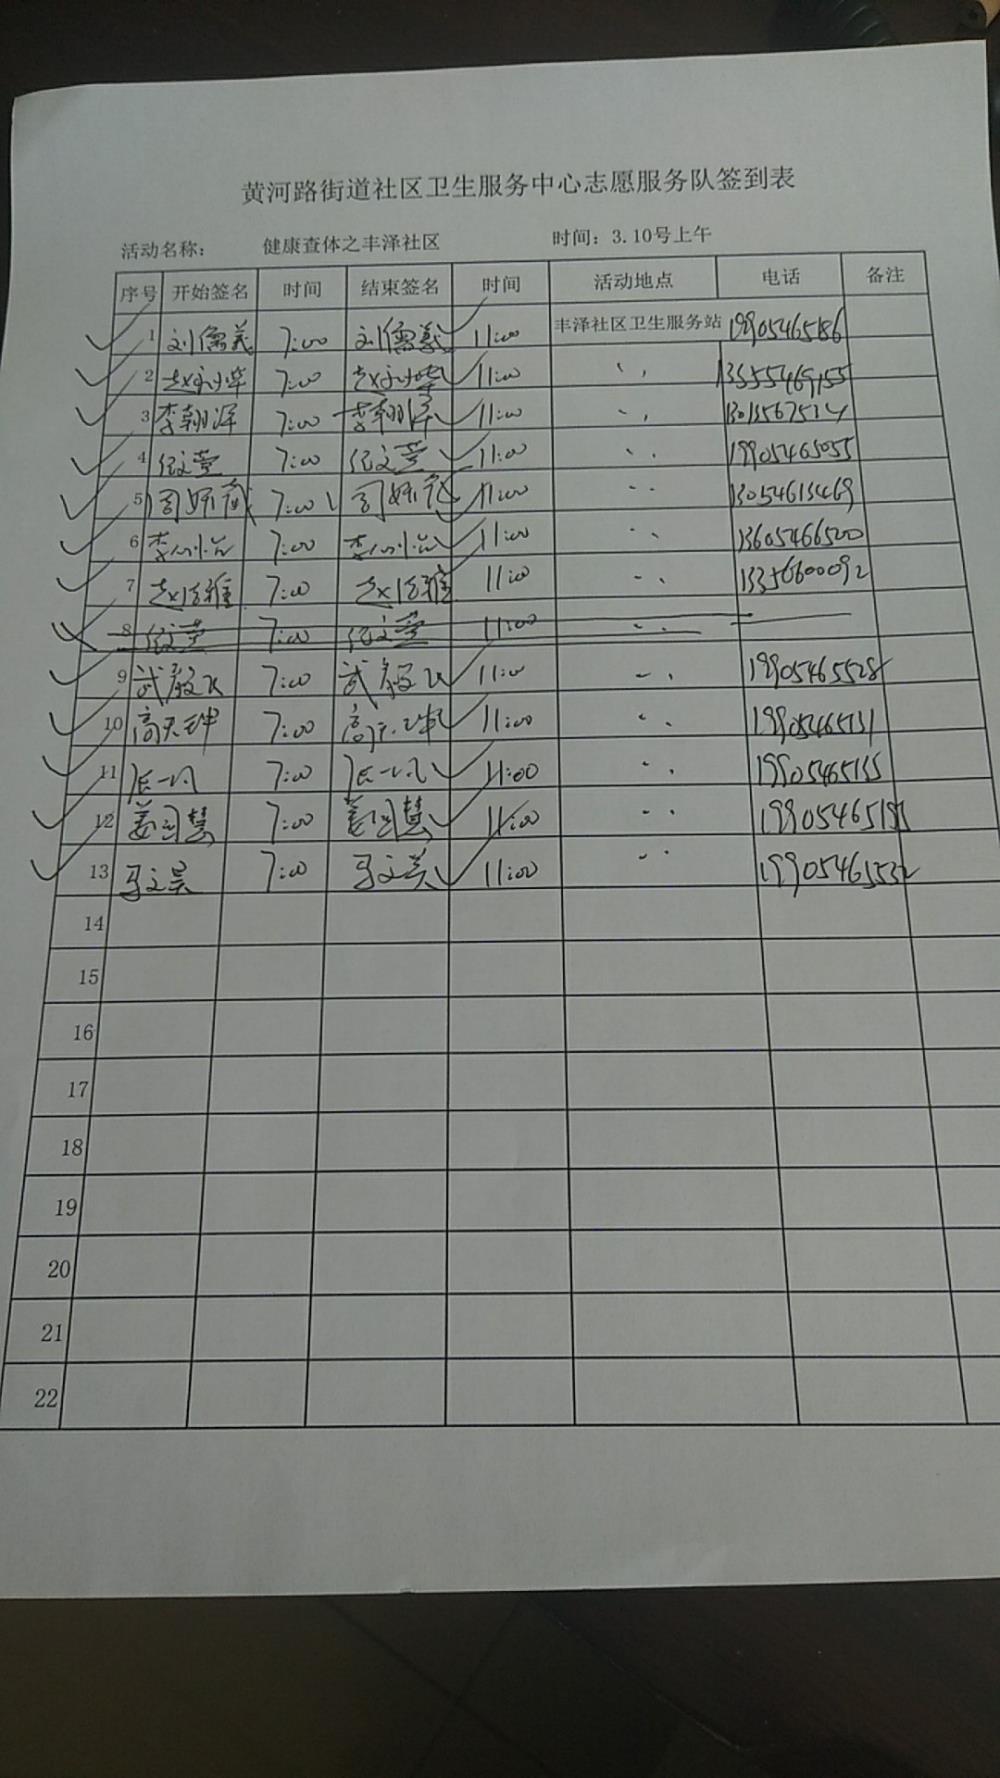 黄河路街道社区卫生服务中心志愿服务队签到表
活动名称: 健康查体之丰泽社区 时间:3.10号上午
序号 开始签名 时间 结束签名 时间 活动地点 电话 备注
1 刘儒義 7:00 刘儒義 11:00 丰泽社区卫生服务站 19905465186
2 7:00 11:00 13555469155
3 李翱泽 7:00 李翱泽 11:00
4 纪文莹 7:00 纪文莹 11:00 19905465055
5 7:00 11:00 13054613469
6 7:00 11:00 13605466500
7 7:00 11:00 13356600092
8 纪文莹 7:00 纪文莹 11:00
9 武毅飞 7:00 武毅飞 11:00 19905465528
10 高天坤 7:00 高天坤 11:00 19905465131
11 张一凡 7:00 张一凡 11:00 19905465135
12 姜闫慧 7:00 姜闫慧 11:00
13 马文昊 7:00 马文昊 11:00 19905465532
14
15
16
17
18
19
20
21
22